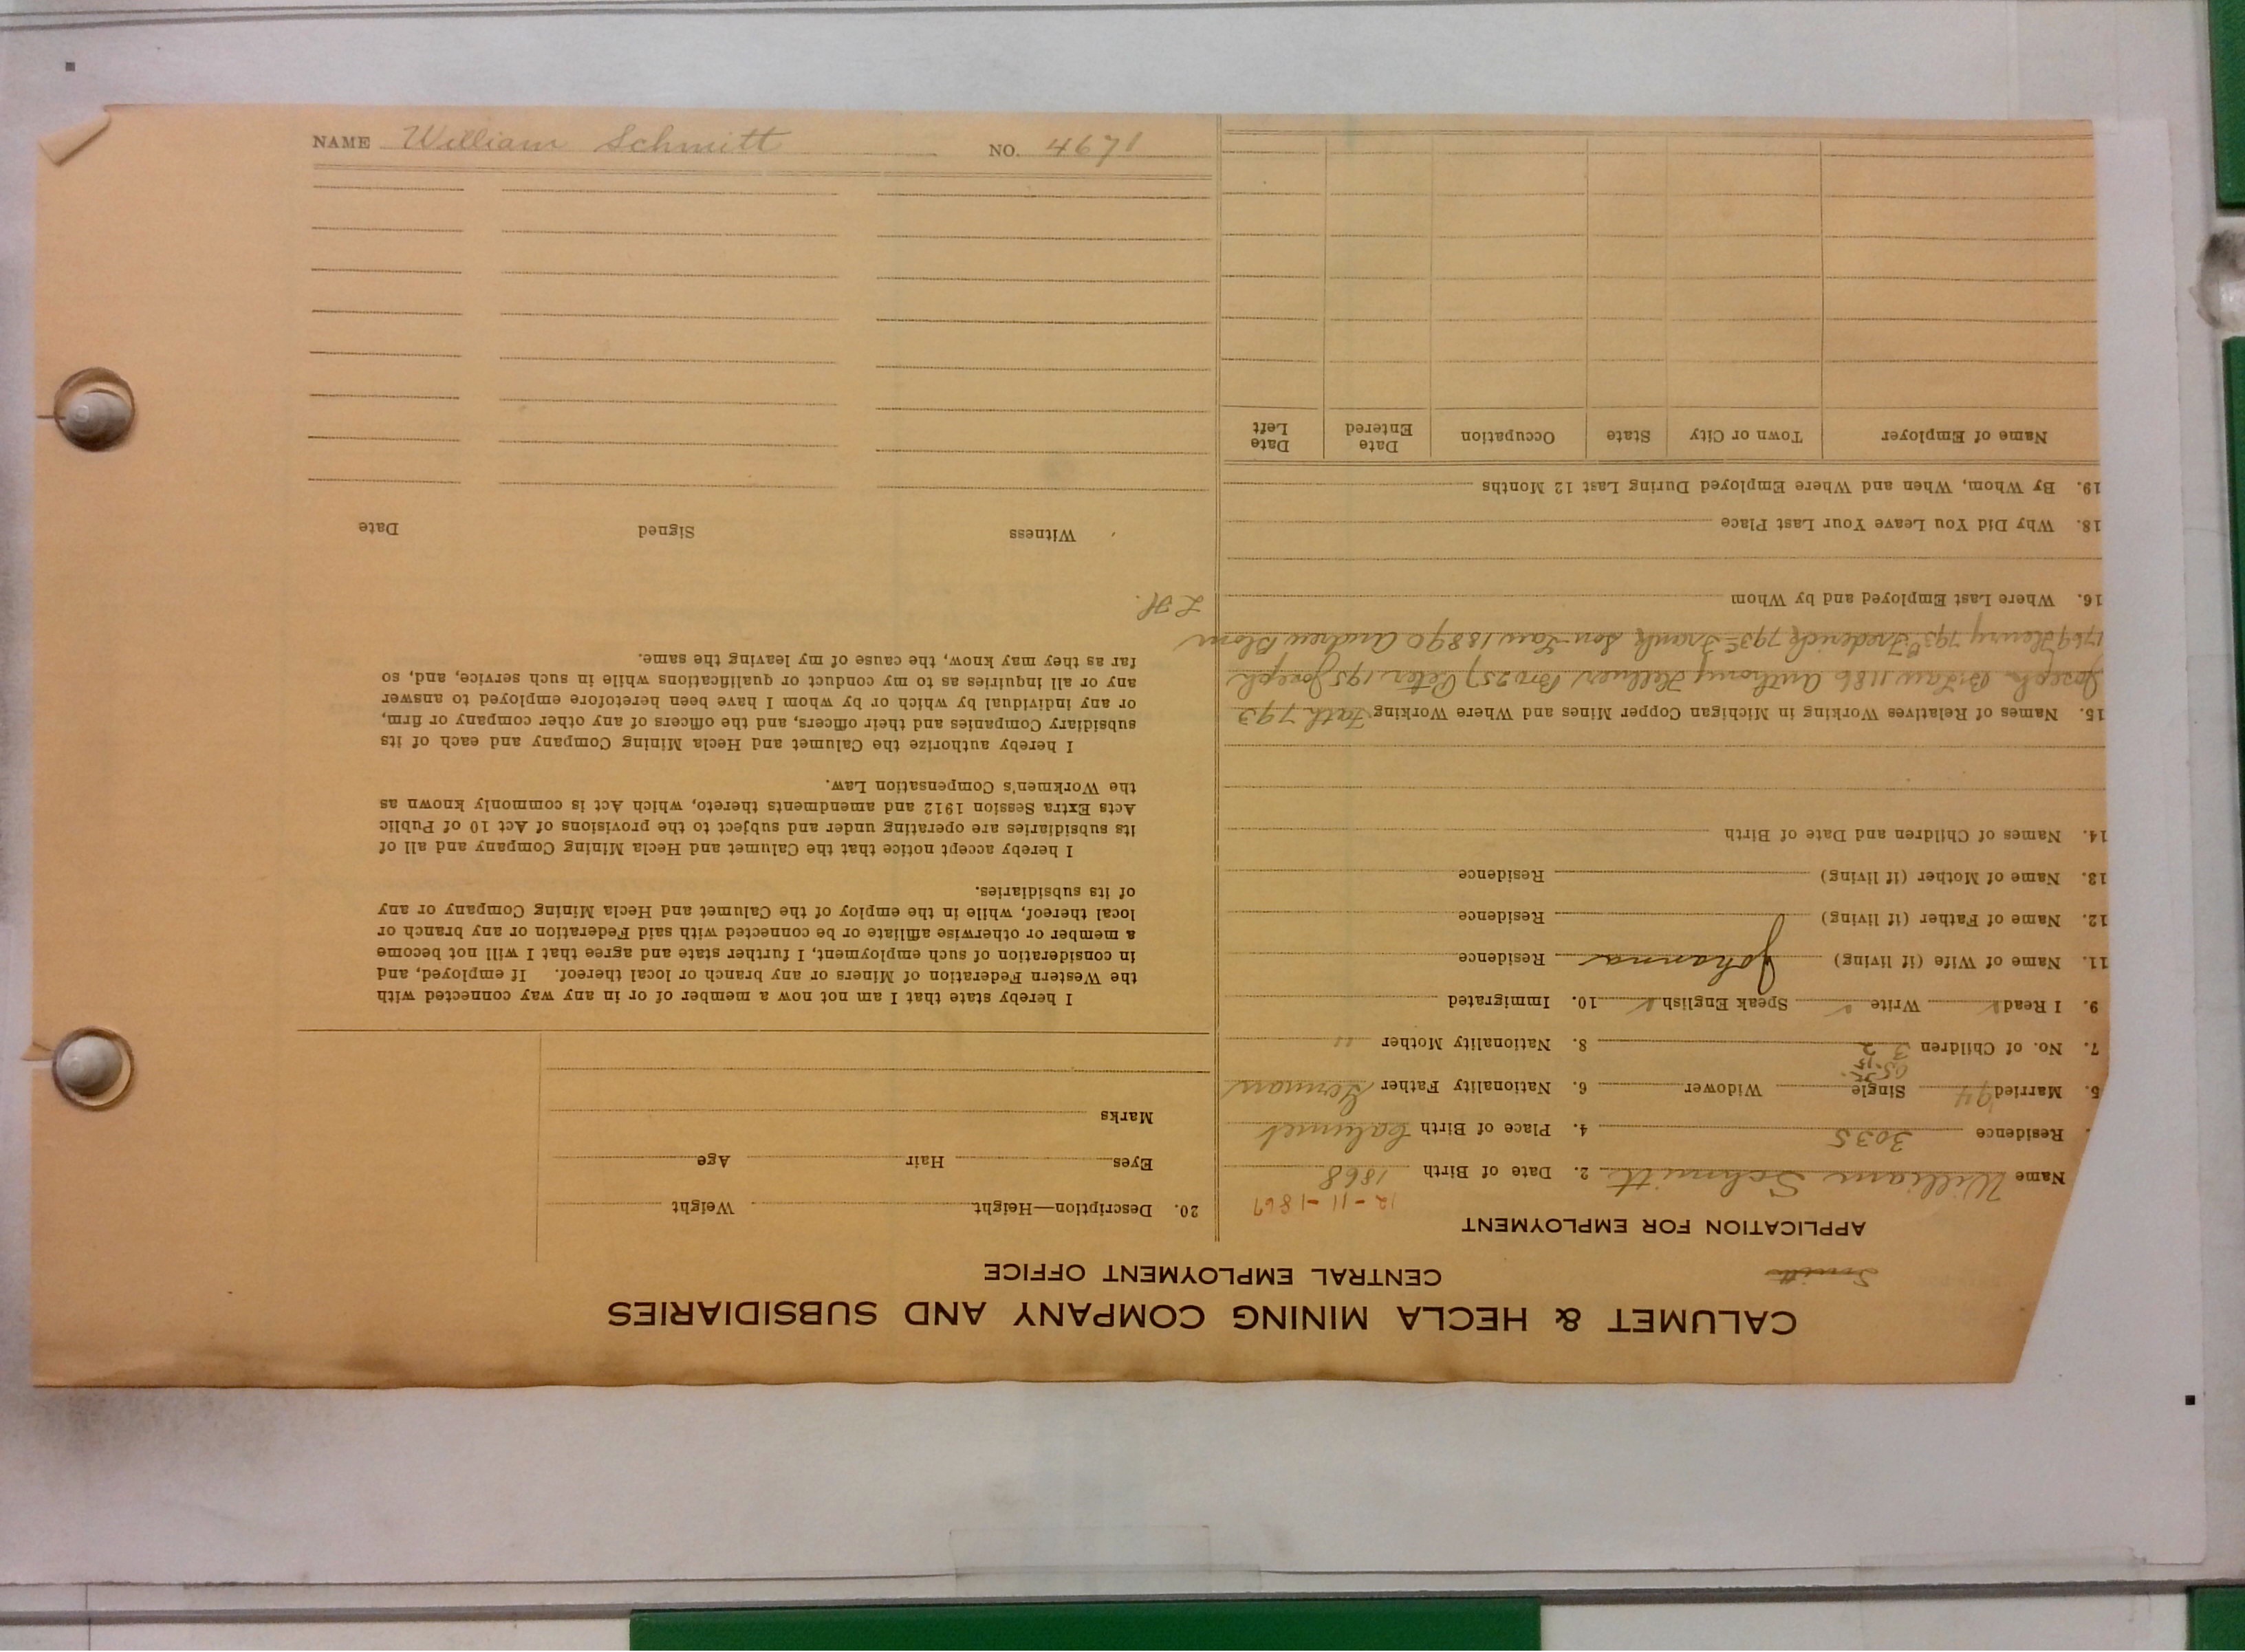 NAME William Schmitt NO. 4671
CALUMET & HECLA MINING COMPANY AND SUBSIDIARIES
CENTRAL EMPLOYMENT OFFICE
APPLICATION FOR EMPLOYMENT
12-11-1867
Name William Schmitt 2. Date of Birth 1868
Residence 3035 4. Place of Birth Calumet
5. Married 94 Single Widower 6. Nationality Father German
7. No. of Children 3 2 8. Nationality Mother "
9. I Read Write Speak English 10. Immigrated
11. Name of Wife (if living) Johanna Residence
12. Name of Father (if living) Residence
13. Name of Mother (if living) Residence
14. Names of Children and Date of Birth
15. Names of Relatives Working in Michigan Copper Mines and Where Working Fath 793
Joseph Br Law 1186 Anthony Hellner Bro 257 Peter 195 Joseph
1769 Henry 793 Frederick 793 Frank Son Law 18890 Andrew Blom
16. Where Last Employed and by Whom
18. Why Did You Leave Your Last Place
19. By Whom, When and Where Employed During Last 12 Months
Name of Employer Town or City State Occupation Date Entered Date Left
20. Description—Height Weight
Eyes Hair Age
Marks
I hereby state that I am not now a member of or in any way connected with
the Western Federation of Miners or any branch or local thereof. If employed, and
in consideration of such employment, I further state and agree that I will not become
a member or otherwise affiliate or be connected with said Federation or any branch or
local thereof, while in the employ of the Calumet and Hecla Mining Company or any
of its subsidiaries.
I hereby accept notice that the Calumet and Hecla Mining Company and all of
its subsidiaries are operating under and subject to the provisions of Act 10 of Public
Acts Extra Session 1912 and amendments thereto, which Act is commonly known as
the Workmen's Compensation Law.
I hereby authorize the Calumet and Hecla Mining Company and each of its
subsidiary Companies and their officers, and the officers of any other company or firm,
or any individual by which or by whom I have been heretofore employed to answer
any or all inquiries as to my conduct or qualifications while in such service, and, so
far as they may know, the cause of my leaving the same.
L.H.
Witness Signed Date